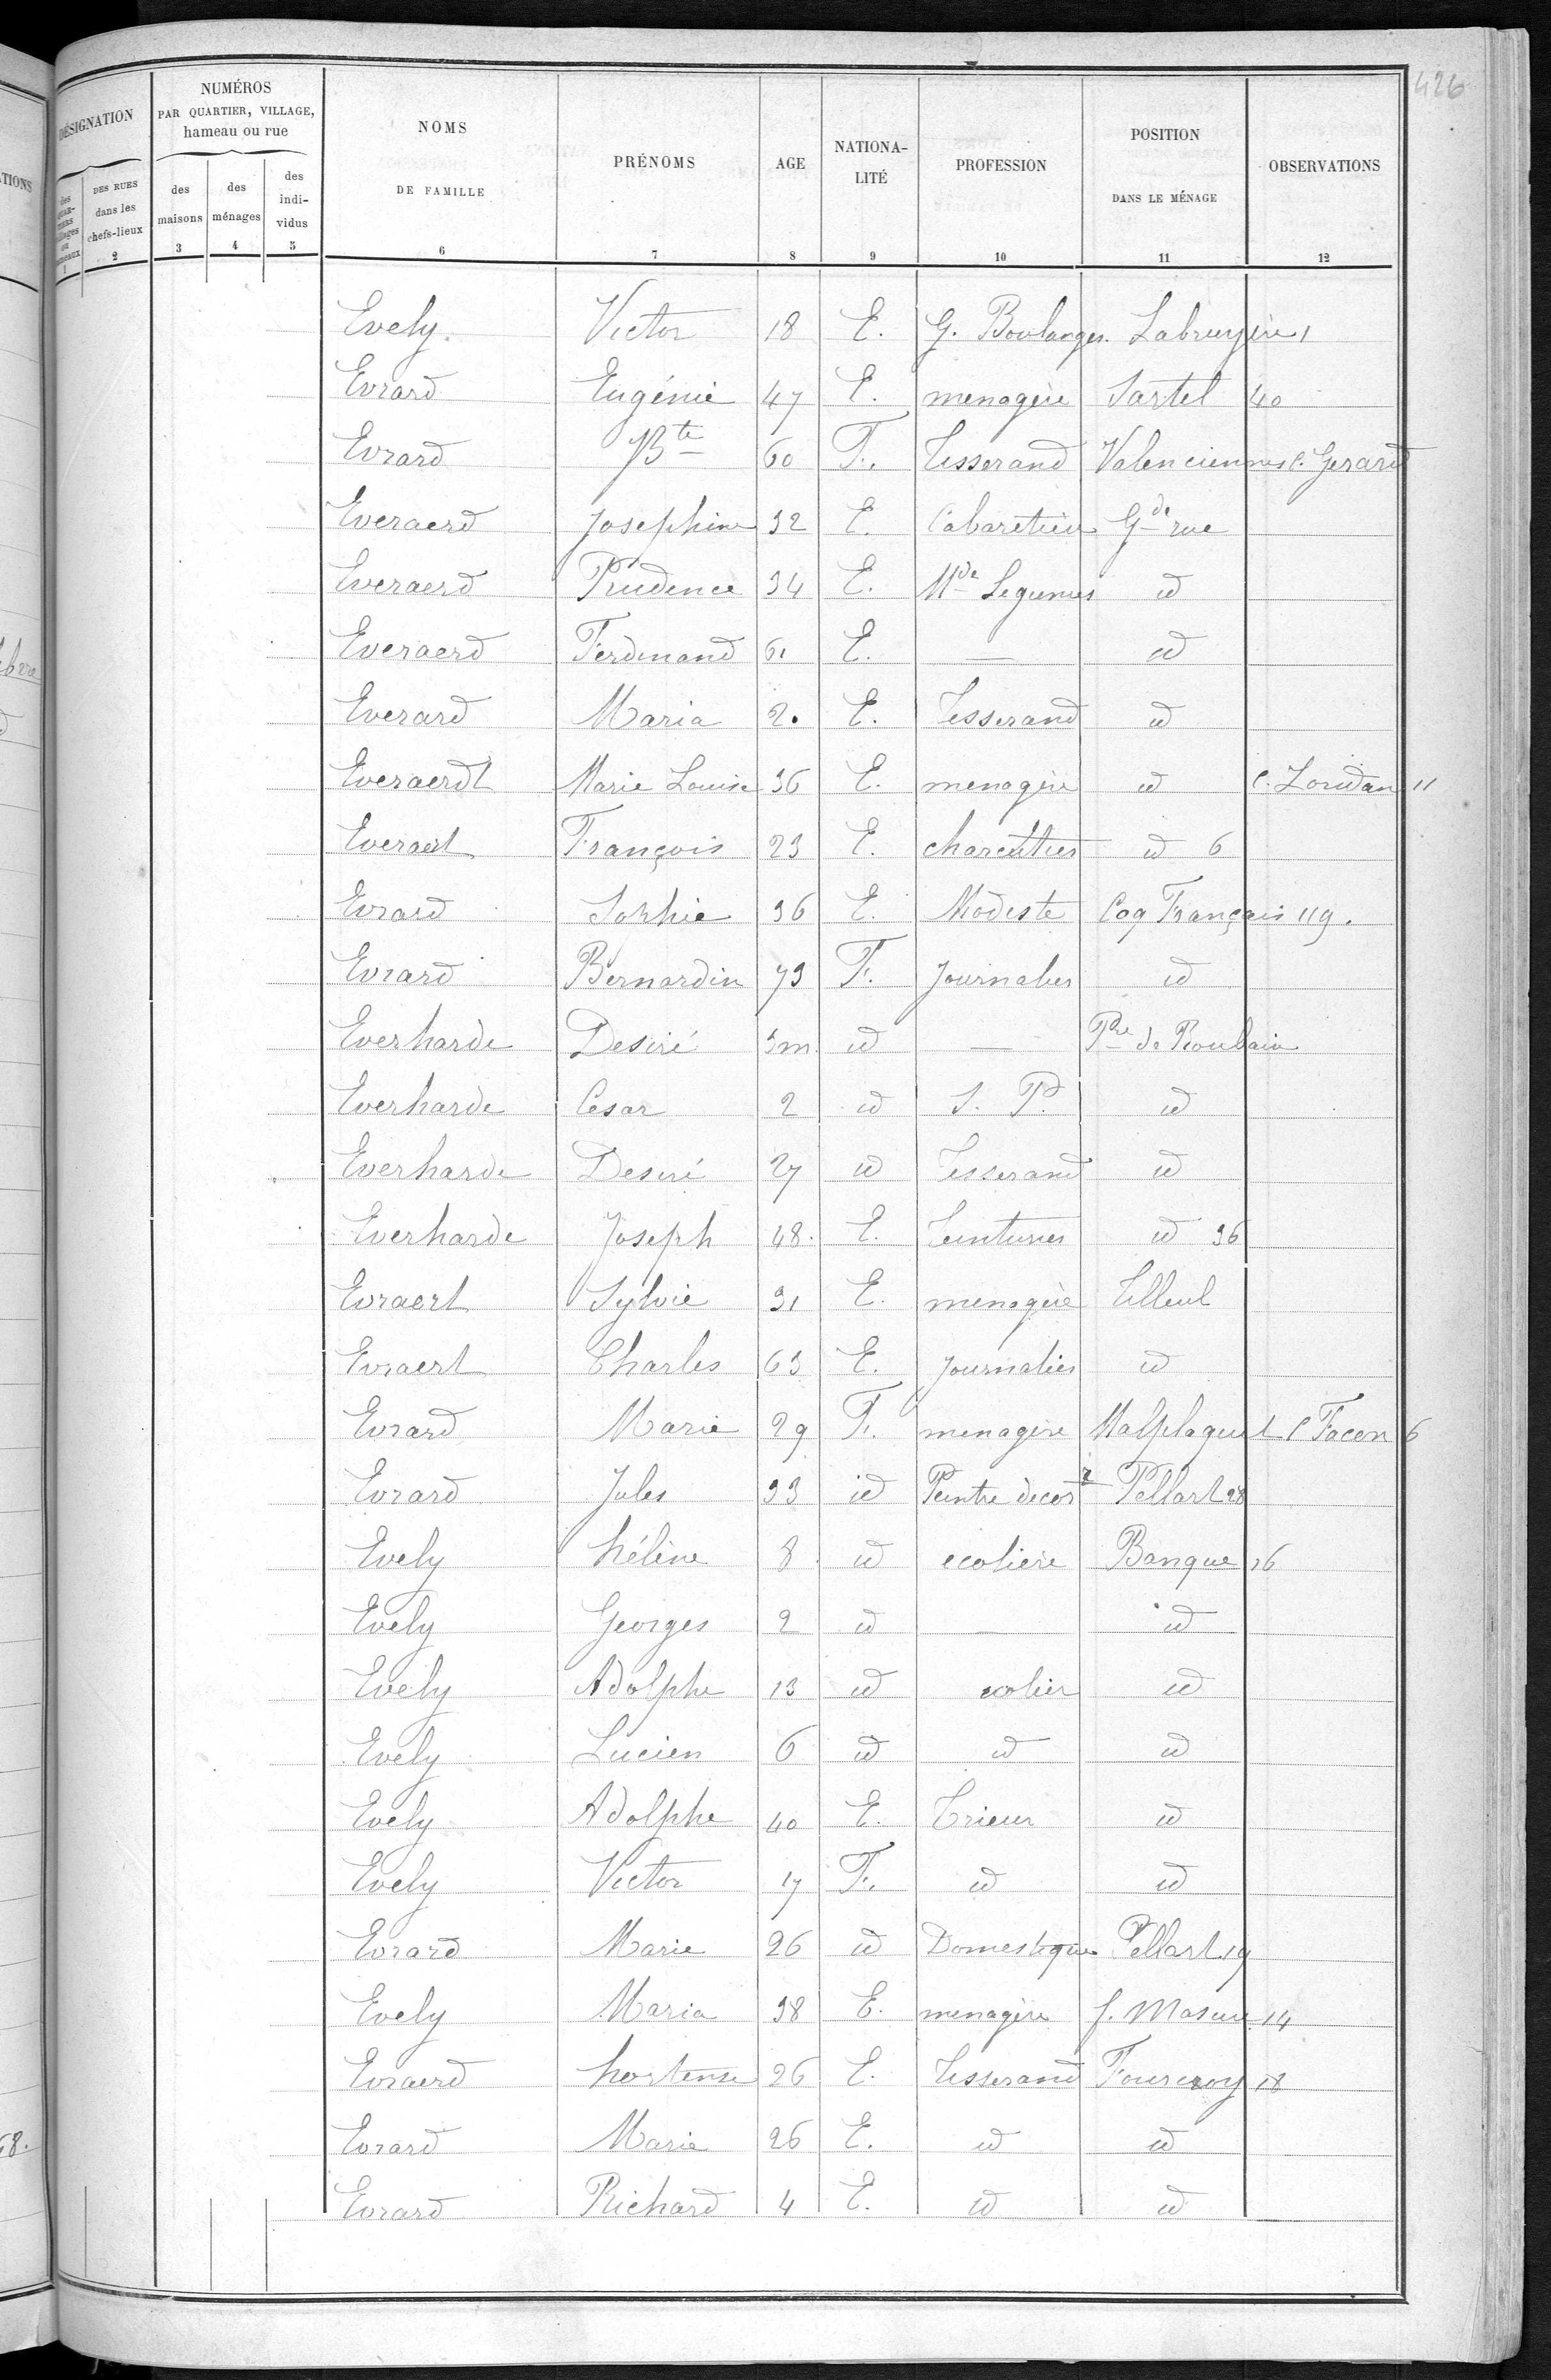 426
DÉSIGNATION
NUMÉROS
PAR QUARTIER, VILLAGE,
hameau ou rue
DES RUES dans les chefs-lieux 2
des maisons 3
des ménages 4
des indi-vidus 5
NOMS DE FAMILLE 6
PRÉNOMS 7
AGE 8
NATIONA-LITÉ 9
PROFESSION 10
POSITION DANS LE MÉNAGE 11
OBSERVATIONS 12
Evely Victor 18 E. G. Boulanger. Labruyère 1
Evrard Eugénie 47 E. menagère Sartel 40
Evrard Bte 60 F. Tisserand Valenciennes C. Gerard
Everaerd Josephine 32 E. Cabaretière Gde rue
Everaerd Prudence 34 E. Mde Legumes id
Everaerd Ferdinand 61 E. — id
Everard Maria 20 E. Tisserand id
Everaerdt Marie Louise 36 E. menagère id C. Loridan 11
Everaert François 23 E. charcutier id 6
Evrard Sophie 36 E. Modiste Coq Français 119.
Evrard Bernardin 73 F. Journalier id
Everharde Desiré 3m id — Pre de Roubaix
Everharde Cesar 2 id S. P. id
Everharde Desiré 27 id Tisserand id
Everharde Joseph 48. E. Teinturier id 36
Evraert Sylvie 31 E. menagère Tilleul
Evraert Charles 63 E. Journalier id
Evrard Marie 29 F. menagère Malplaquet C Facon 6
Evrard Jules 33 id Peintre decorr Pellart 28
Evely hélène 8 id ecolière Banque 16
Evely Georges 2 id — id
Evely Adolphe 13 id ecolier id
Evely Lucien 6 id id id
Evely Adolphe 40 E. Trieur id
Evely Victor 17 F. id id
Evrard Marie 26 id Domestique Pellart 19
Evely Maria 38 E. menagère f. Masure 14
Evraerd hortense 26 E. Tisserand Fourcroy 18
Evrard Marie 26 E. id id
Evrard Richard 4 E. id id